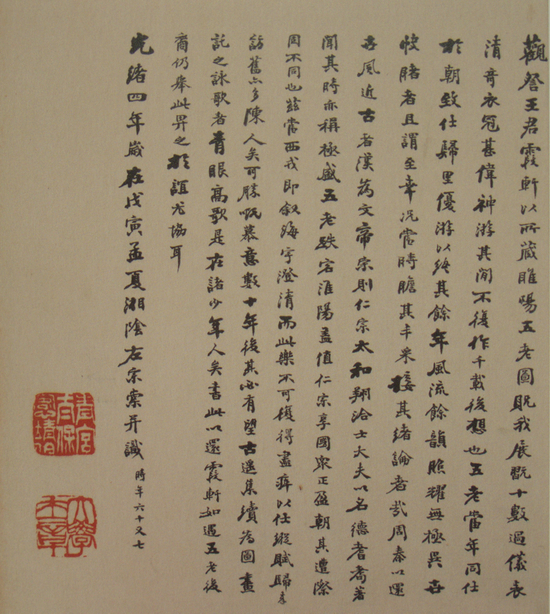 觀詧王君霞軒以所藏睢陽五老圖貺我展翫十數過儀表
清奇衣冠甚偉神游其間不復作千載後想也五老當年同仕
於朝致仕歸里優游以終其餘年風流餘韻照耀無極異世
收睹者且謂至幸況當時瞻其丰采接其緒論者哉周秦以還
世風近古者漢為文帝宋則仁宗太和翔洽士大夫以名德耆喬著
聞其時亦稱極盛五老跌宕淮陽蓋值仁宗享國最正盈朝其遭際
固不同也茲當西戎即敘海宇澄清而此樂不可復得盡瘁以仕縱賦歸來
訪舊亦多陳人矣可勝嘅慕意數十年後其必有望古遥集續為圖畫
託之詠歌者青眼高歌是在諸少年人矣書此以還霞軒如遇五老後
裔仍舉此畀之於誼尤協耳
光緒四年歲在戊寅孟夏湘陰左宗棠并識 時年六十又七
大學士章